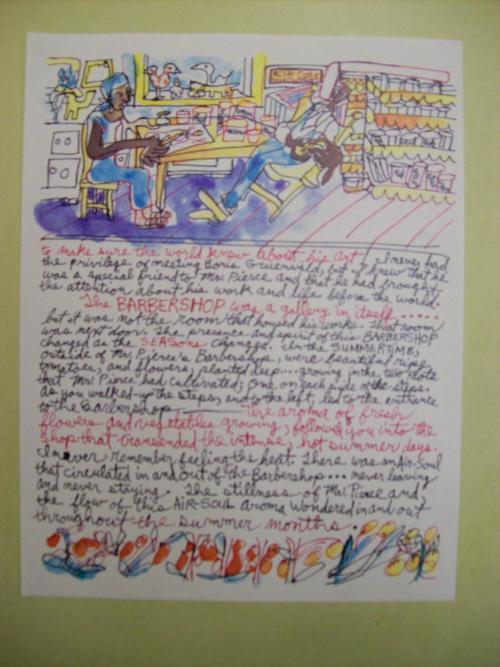 to make sure the world knew about his art. I never had
the privilege of meeting Boris Gruenwald, but I knew that he
was a special friend to Mr. Pierce and that he had brought
the attention about his work and life before the world.
The BARBERSHOP was a gallery in itself......
but it was not the room that housed his works. That room
was next door. The presence and spirit of this BARBERSHOP
changed as the SEASONS changed. In the SUMMERTIME,
outside of Mr. Pierce's Barbershops, were beautiful ripe
tomatoes, and flowers, planted deep....growing in the two plots
that Mr. Pierce had cultivated; one on each side of the steps.
As you walked up the steps, and to the left, led to the entrance
to the Barbershop The aroma of fresh
flowers and vegetables growing, followed you into the
shop that transended the intense, hot summer days.
I never remember feeling the heat. There was an Air-Soul
that circulated in and out of the Barbershop... never leaving
and never staying. The stillness of Mr. Pierce and
the flow of this AIR-SOUL aroma wondered in and out
throughout the summer months.